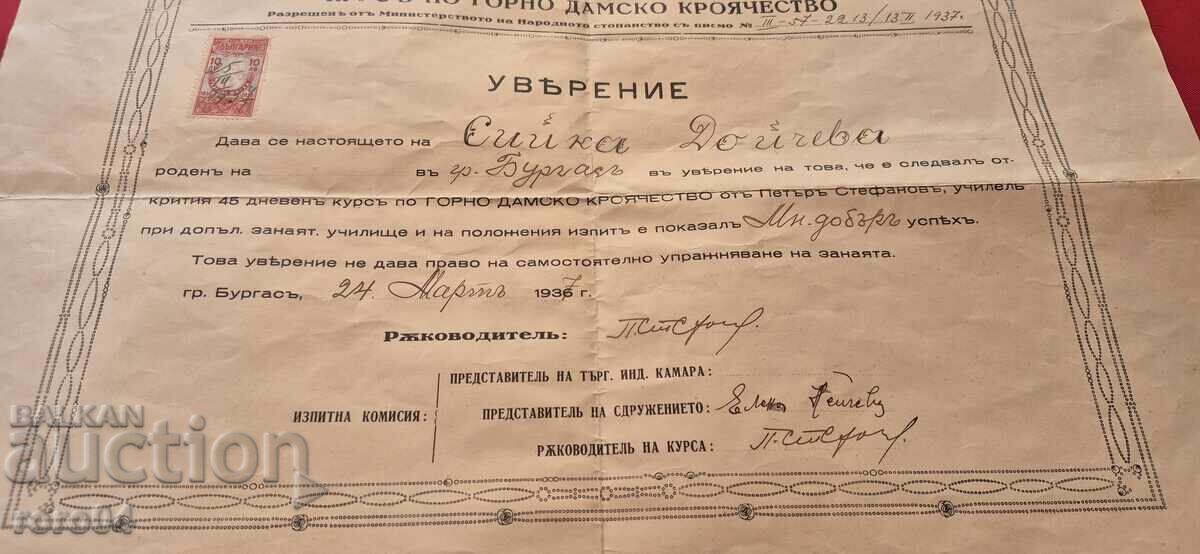 КУРСЪ ПО ГОРНО ДАМСКО КРОЯЧЕСТВО
Разрешенъ отъ Министерството на Народното стопанство съ писмо № III-57-2213/13 II 1937.
БЪЛГАРИЯ
10 10
УВѢРЕНИЕ
Дава се настоящето на Сийка Дойчева
роденъ на въ гр. Бургасъ въ уверение на това, че е следвалъ от-
крития 45 дневенъ курсъ по ГОРНО ДАМСКО КРОЯЧЕСТВО отъ Петъръ Стефановъ, училель
при допъл. занаят. училище и на положения изпитъ е показалъ Мн. добъръ успѣхъ.
Това увѣрение не дава право на самостоятелно упражняване на занаята.
гр. Бургасъ, 24. Мартъ 1937 г.
Рѫководитель:
ПРЕДСТАВИТЕЛ НА ТЪРГ. ИНД. КАМАРА:
ИЗПИТНА КОМИСИЯ: ПРЕДСТАВИТЕЛ НА СДРУЖЕНИЕТО:
РѪКОВОДИТЕЛ НА КУРСА:
BALKAN
auction
roro04